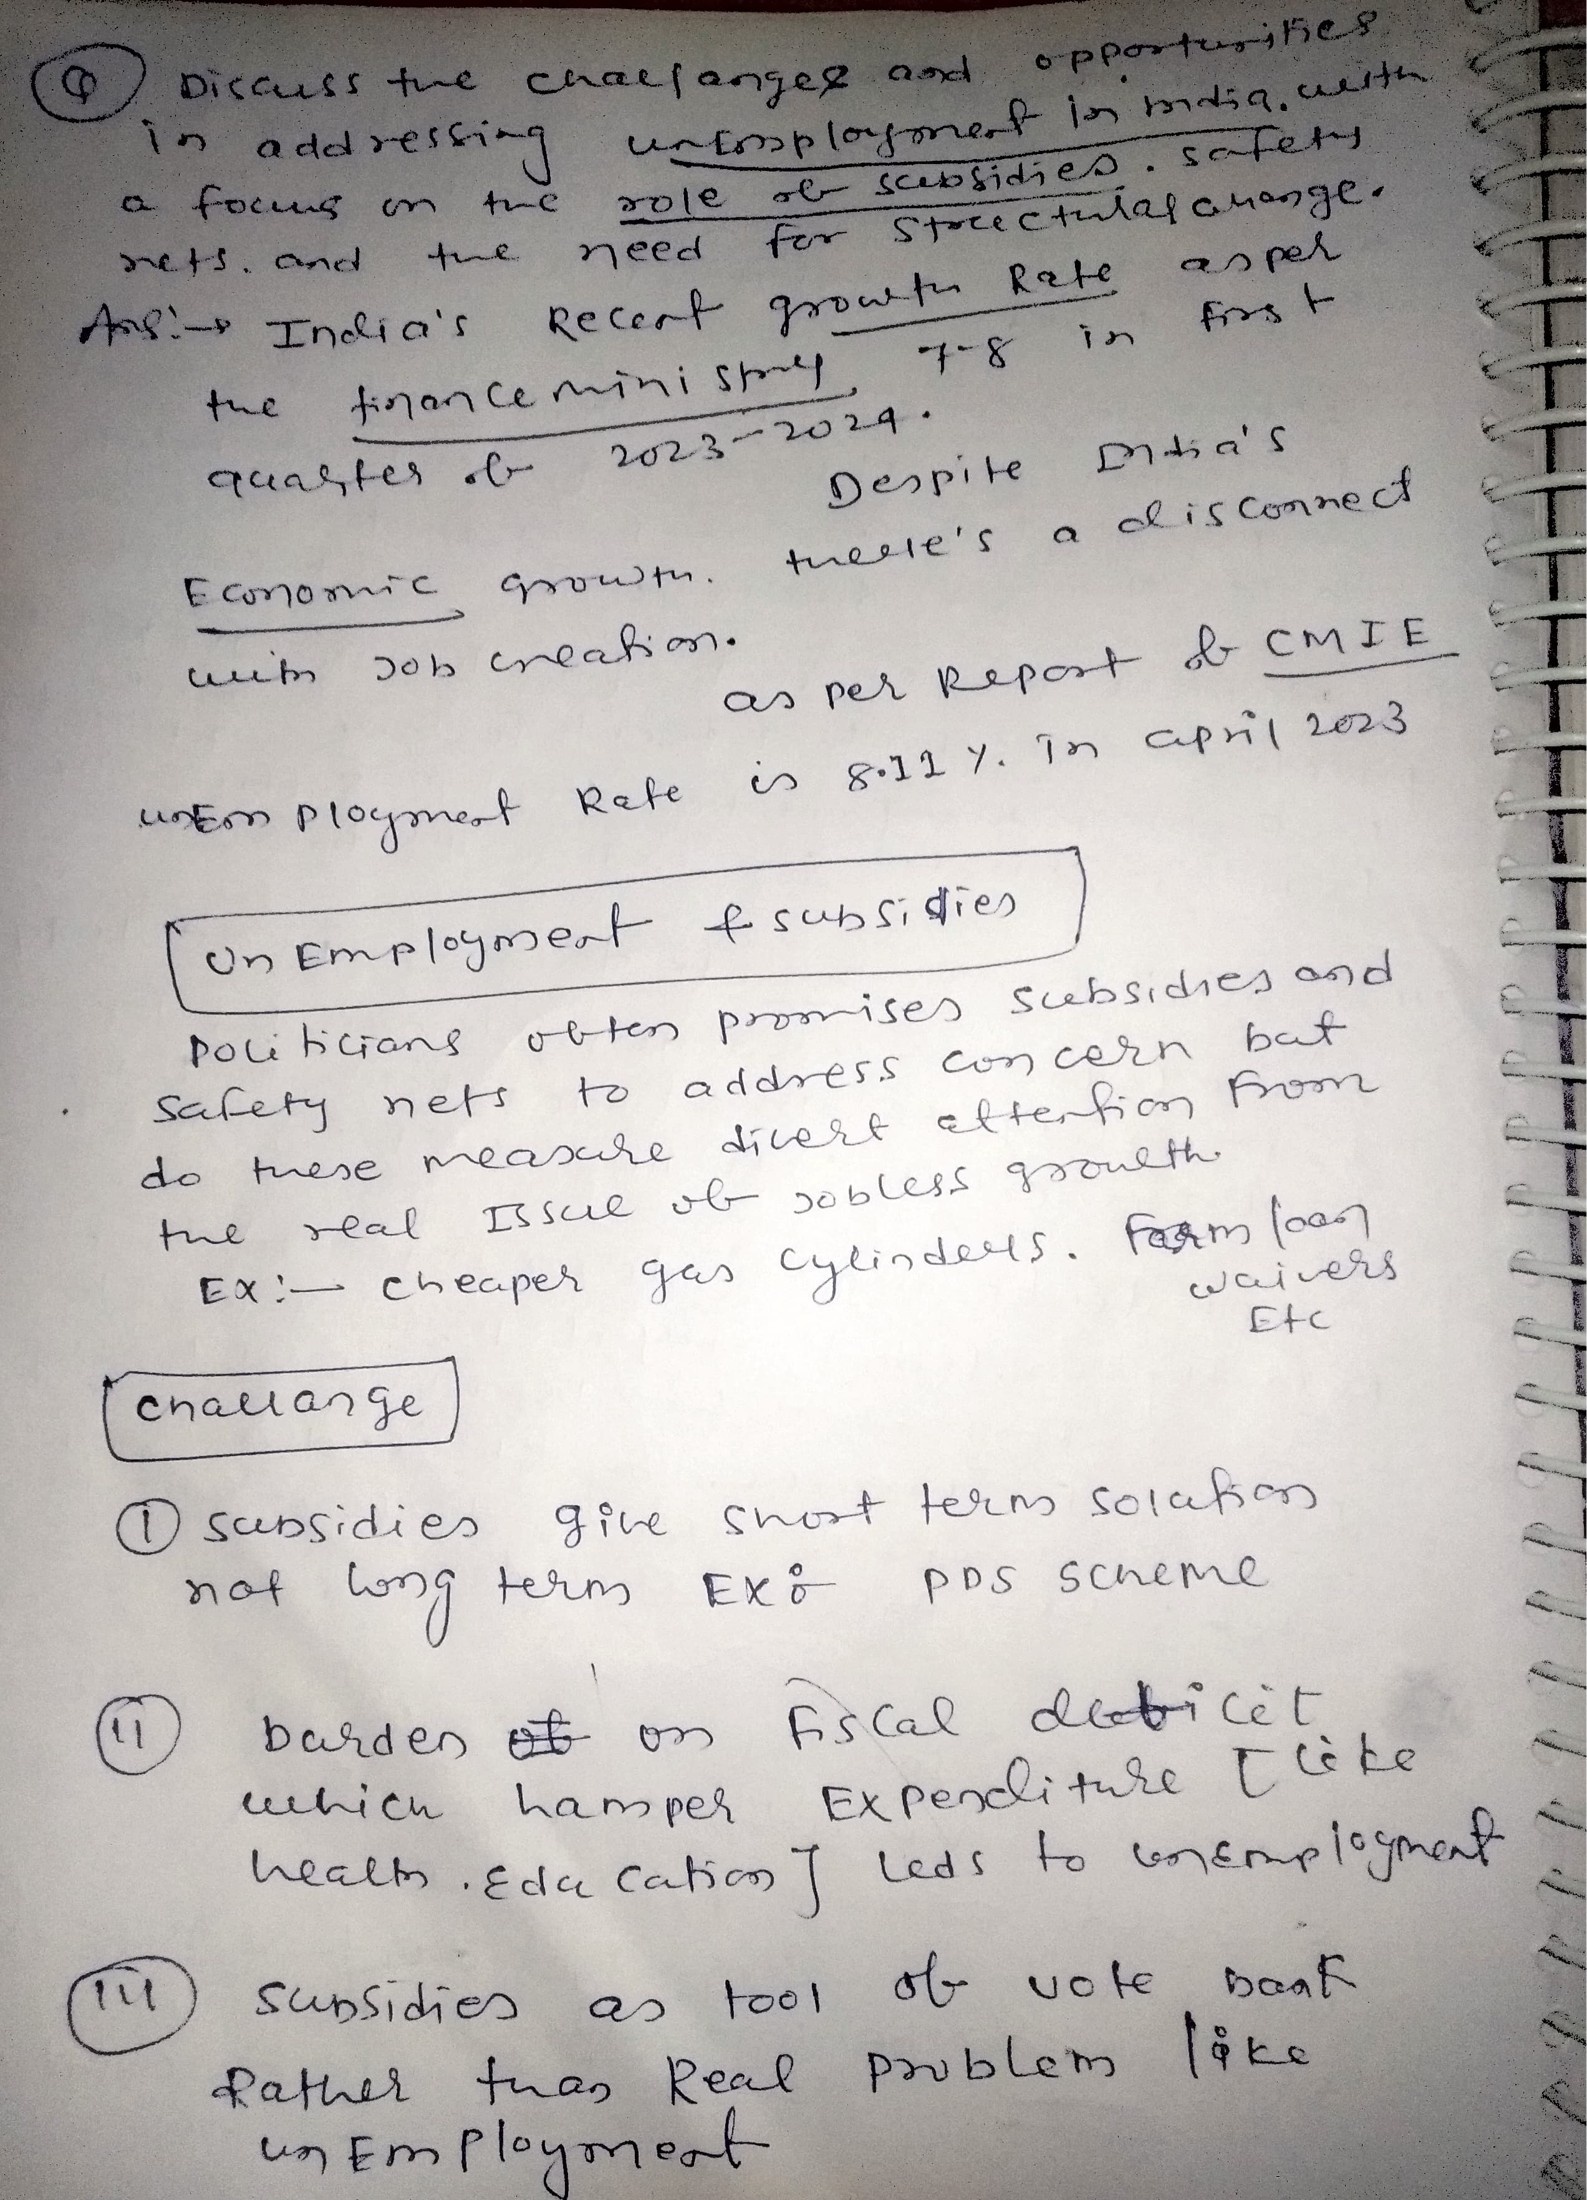 Q Discuss the challanges and opportunities
in addressing unEmployment in India. with
a focus on the role of subsidies. safety
nets. and the need for structural change.
Ans:→ India's Recent growth Rate as per
the finance ministry 7-8 in first
quarter of 2023-2024.
Despite India's
Economic growth. there's a disconnect
with Job creation.
as per Report of CMIE
unEmployment Rate is 8.11 %. in april 2023
UnEmployment & subsidies
Politicians often promises subsidies and
safety nets to address concern but
do these measure divert attention from
the real Issue of Jobless growth.
EX:- cheaper gas cylinders. Farm loan
waivers
Etc
challange
(I) subsidies give short term solution
not long term EX: PDS scheme
(II) burden of on fiscal deficit
which hamper Expenditure [like
health. Education] leds to unEmployment
(III) subsidies as tool of vote bank
Rather than Real problem like
unEmployment